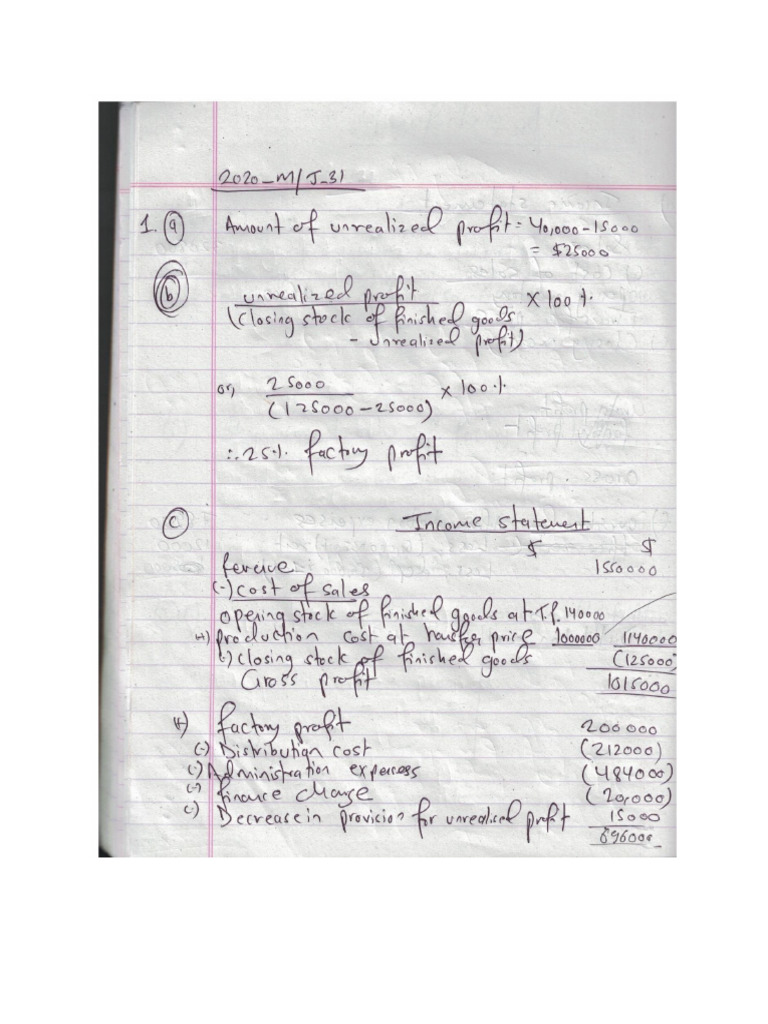 2020-M/J-31
1. (a) Amount of unrealized profit = 40,000 - 15000
= $25000
(b) unrealized profit × 100%
(Closing stock of finished goods
- Unrealised profit)
or, 25000 × 100%
(125000 - 25000)
∴ 25% factory profit
(c) Income statement
$ $
Revenue 1550000
(-) Cost of sales
Opening stock of finished goods at T.P. 140000
(+) production cost at transfer price 1000000 1140000
(-) closing stock of finished goods (125000)
Gross profit 1015000
(+) factory profit 200000
(-) Distribution cost (212000)
(-) Administration expencess (484000)
(-) finance charge (20,000)
(-) Decrease in provision for unrealised profit 15000